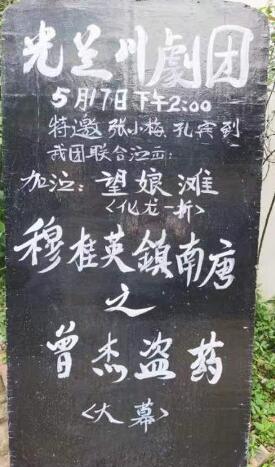 光兰川劇团
5月17日下午2:00
特邀 张小梅 孔宾到
我团联合泣击:
加泣: 望娘滩
<化龙一折>
穆桂英鎮南唐
之
曾杰盗药
<大幕>